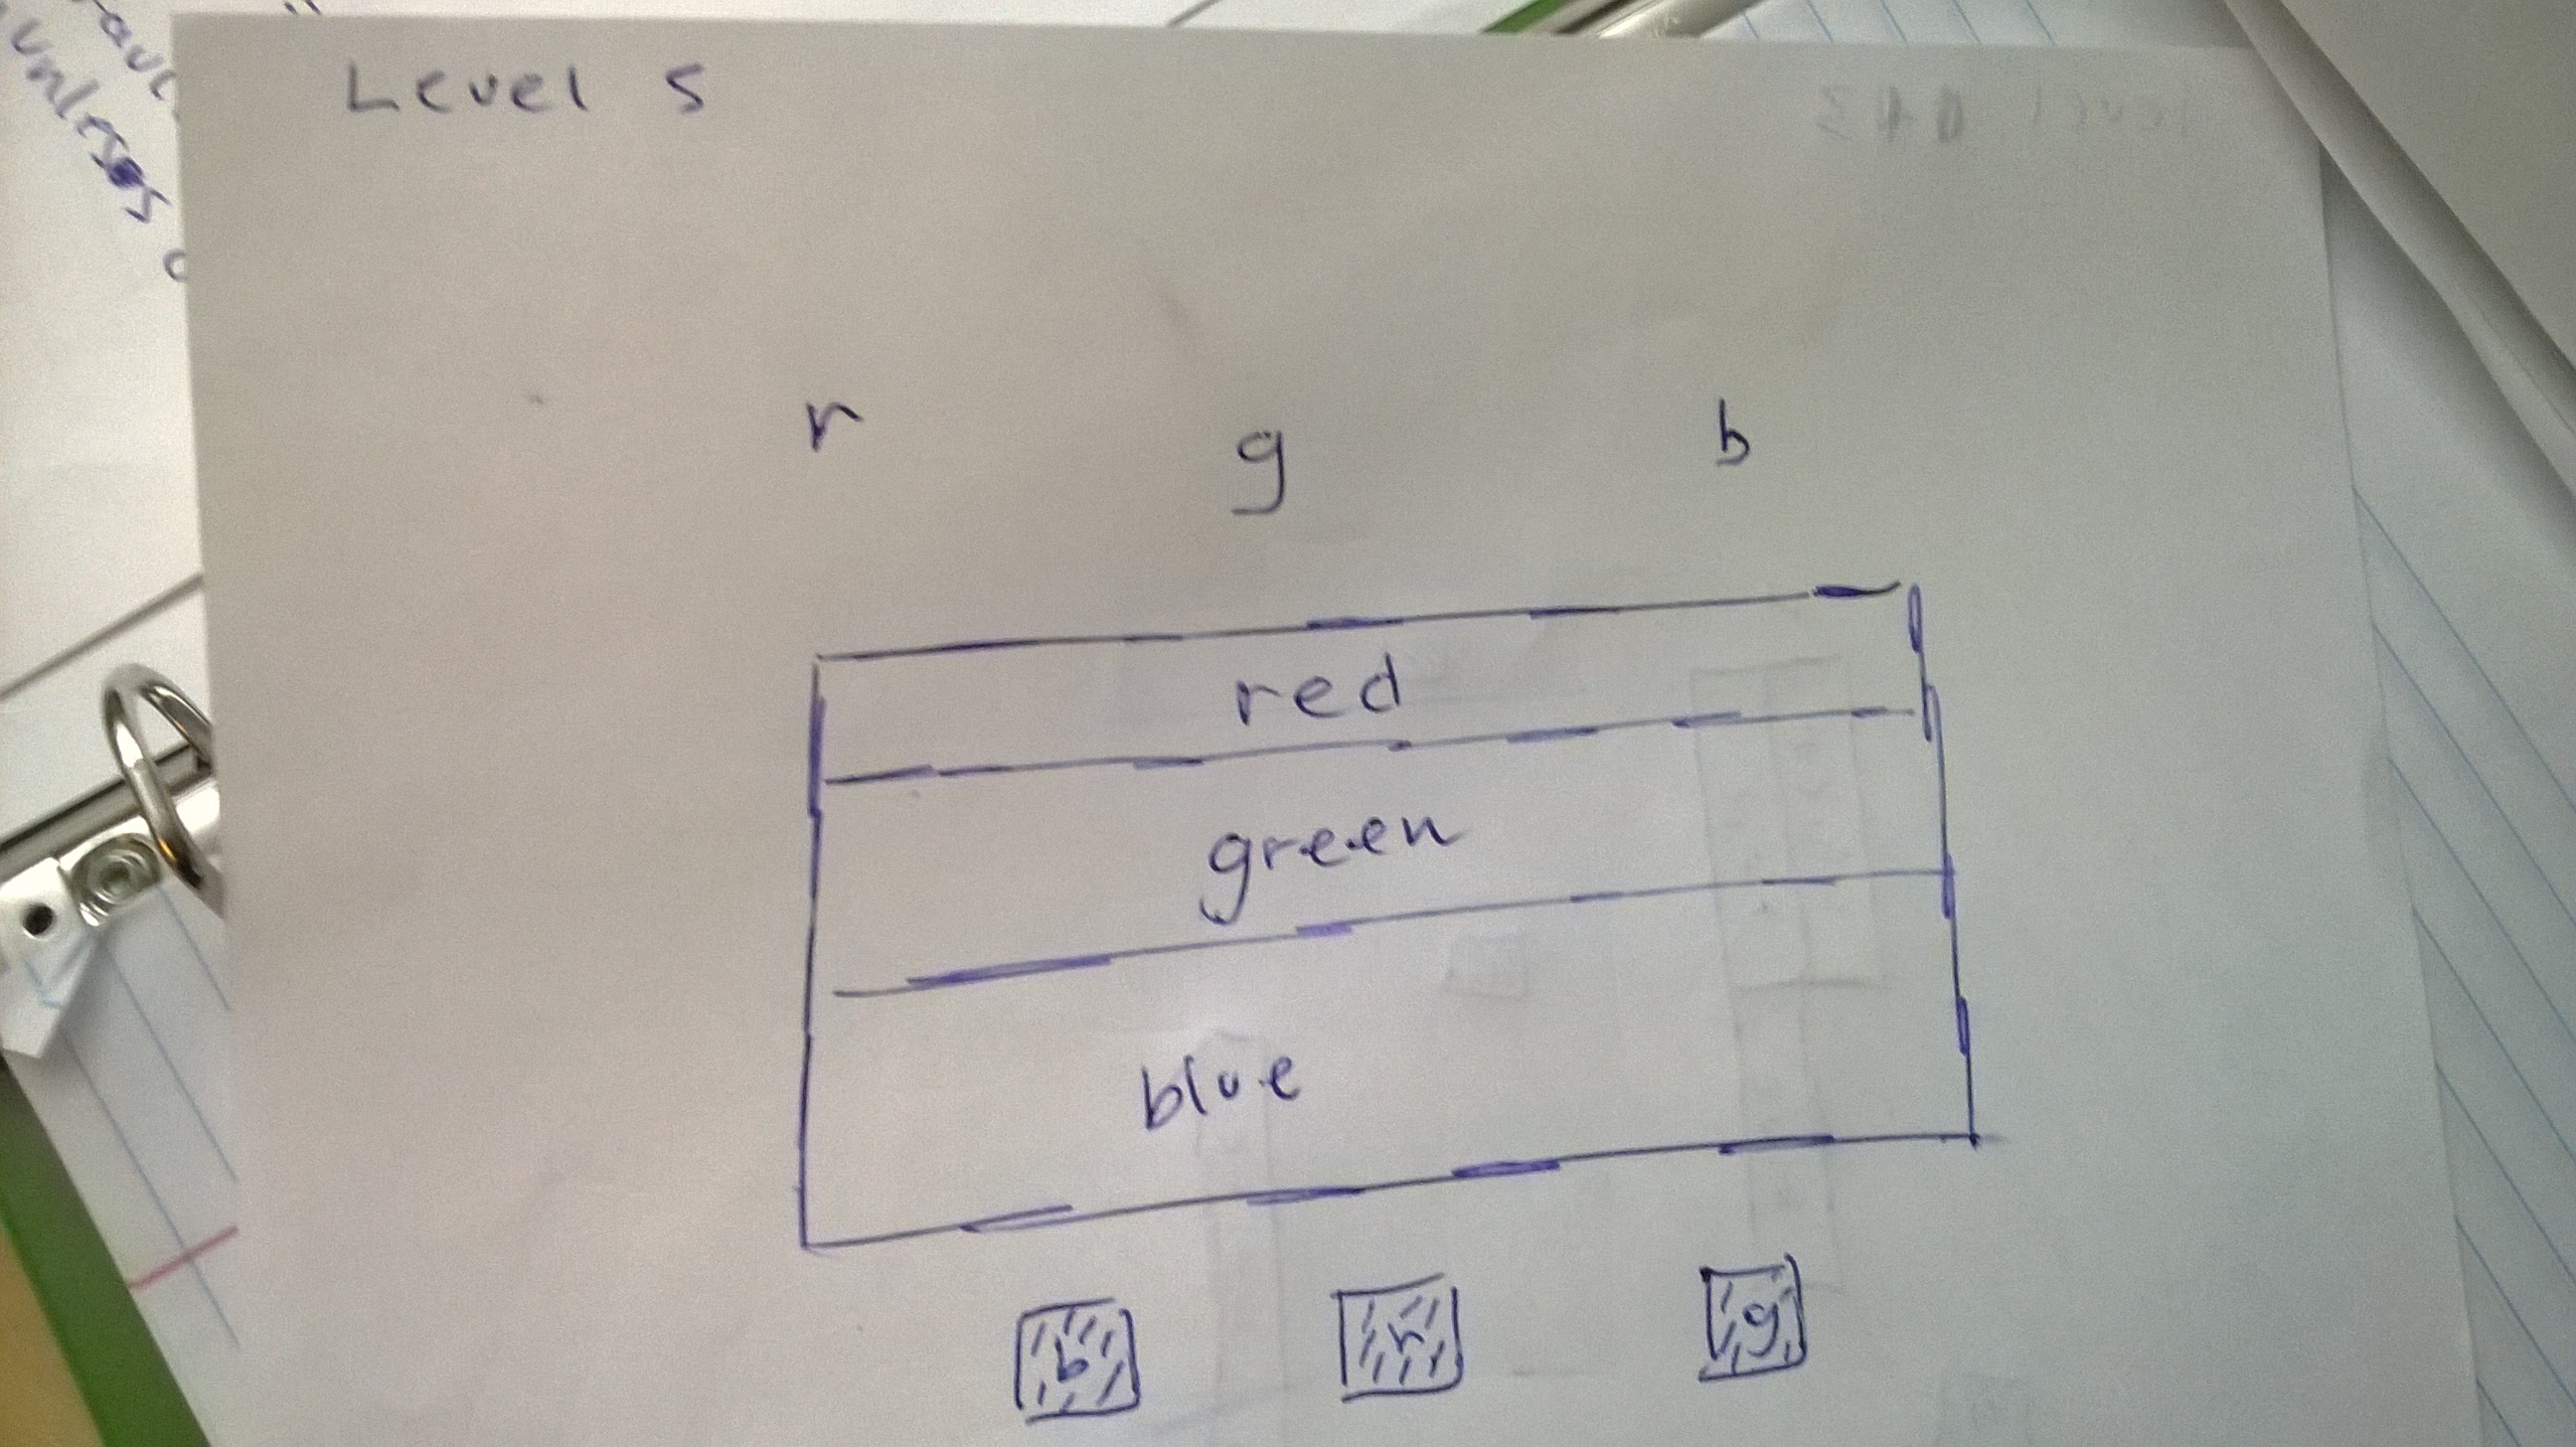 unless
Level 5
r g b
red
green
blue
b r g